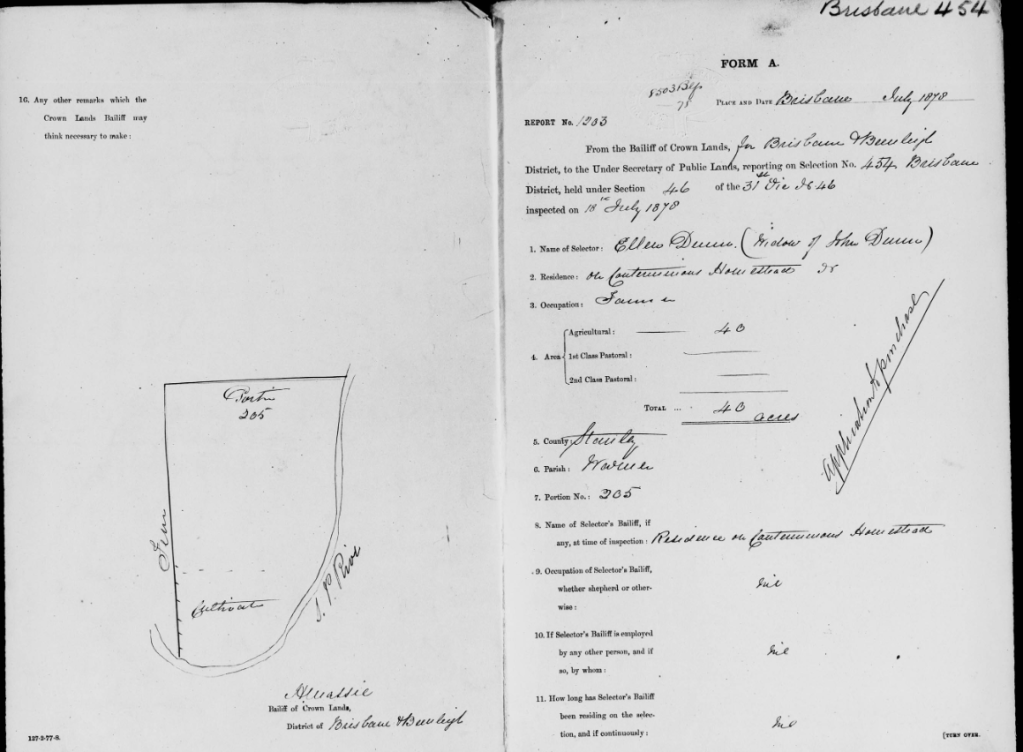 16. Any other remarks which the
Crown Lands Bailiff may
think necessary to make:
Portn
205
Fence
Cultivat
S. P. River
A Massie
Bailiff of Crown Lands,
District of Brisbane & Beenleigh
127-3-77-8.
Brisbane 454
FORM A.
78
PLACE AND DATE Brisbane July 1878
REPORT No. 1203
From the Bailiff of Crown Lands, for Brisbane & Beenleigh
District, to the Under Secretary of Public Lands, reporting on Selection No. 454 Brisbane
District, held under Section 46 of the 31st Vic No 46
inspected on 18th July 1878
1. Name of Selector: Ellen Dunn. (Widow of John Dunn)
2. Residence: on Conterminous Homestead
3. Occupation: Farmer
4. Area
Agricultural: 40
1st Class Pastoral:
2nd Class Pastoral:
TOTAL ... 40 acres
5. County Stanley
6. Parish: Warner
7. Portion No.: 205
8. Name of Selector's Bailiff, if
any, at time of inspection: Residence on Conterminous Homestead
9. Occupation of Selector's Bailiff,
whether shepherd or other-
wise: nil
10. If Selector's Bailiff is employed
by any other person, and if
so, by whom: nil
11. How long has Selector's Bailiff
been residing on the selec-
tion, and if continuously: nil
Application to purchase
[TURN OVER.